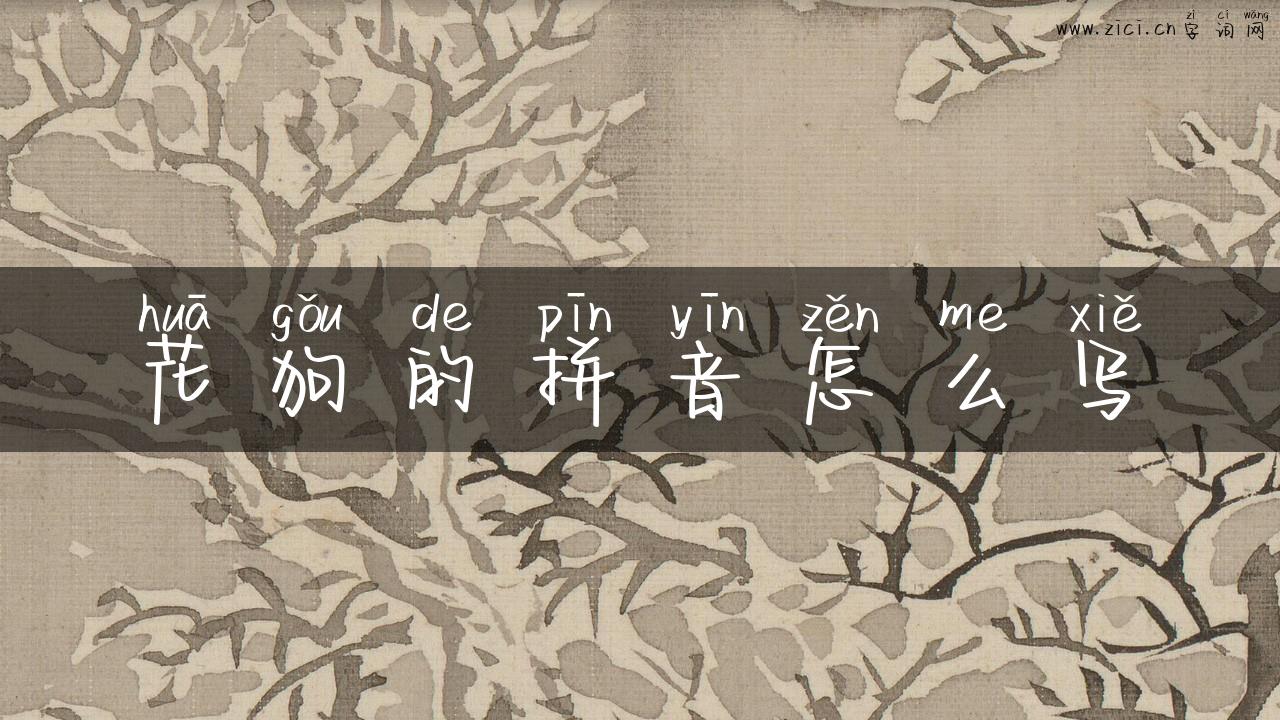 www.zici.cn
zì cí wǎng
字词网
huā gǒu de pīn yīn zěn me xiě
花狗的拼音怎么写